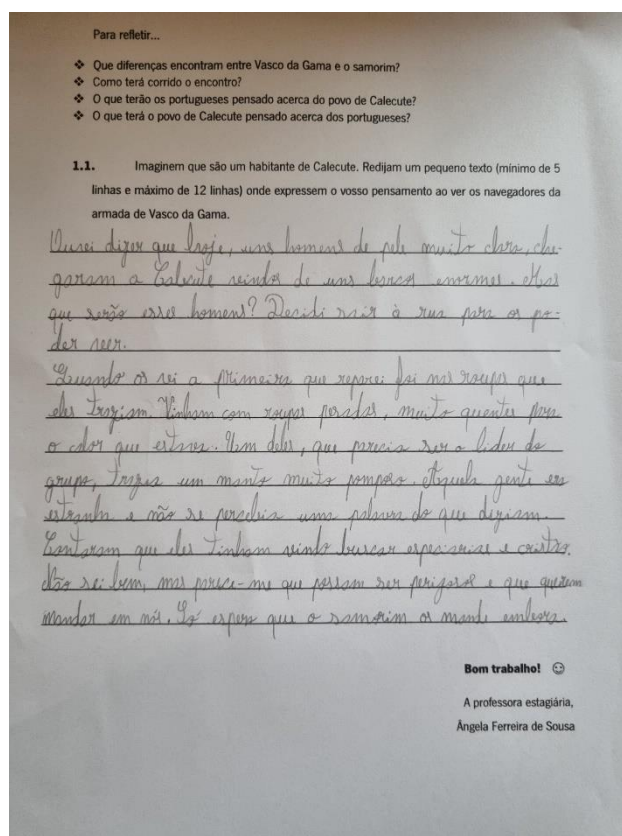 Para refletir...
❖ Que diferenças encontram entre Vasco da Gama e o samorim?
❖ Como terá corrido o encontro?
❖ O que terão os portugueses pensado acerca do povo de Calecute?
❖ O que terá o povo de Calecute pensado acerca dos portugueses?
1.1. Imaginem que são um habitante de Calecute. Redijam um pequeno texto (mínimo de 5
linhas e máximo de 12 linhas) onde expressem o vosso pensamento ao ver os navegadores da
armada de Vasco da Gama.
Ouvi dizer que hoje, uns homens de pele muito clara, che-
garam a Calecute vindos de uns barcos enormes. Mas
que serão esses homens? Decidi sair à rua para os po-
der ver.
Quando os vi a primeira que reparei foi nas roupas que
eles traziam. Vinham com roupas pesadas, muito quentes para
o calor que estava. Um deles, que parecia ser o líder do
grupo, trazia um manto muito pomposo. Aquela gente era
estranha e não se percebia uma palavra do que diziam.
Contaram que eles tinham vindo buscar especiarias e cristãos.
Não sei bem, mas parece-me que possam ser perigosos e que queiram
mandar em nós. Só espero que o samorim os mande embora.
Bom trabalho! ☺
A professora estagiária,
Ângela Ferreira de Sousa